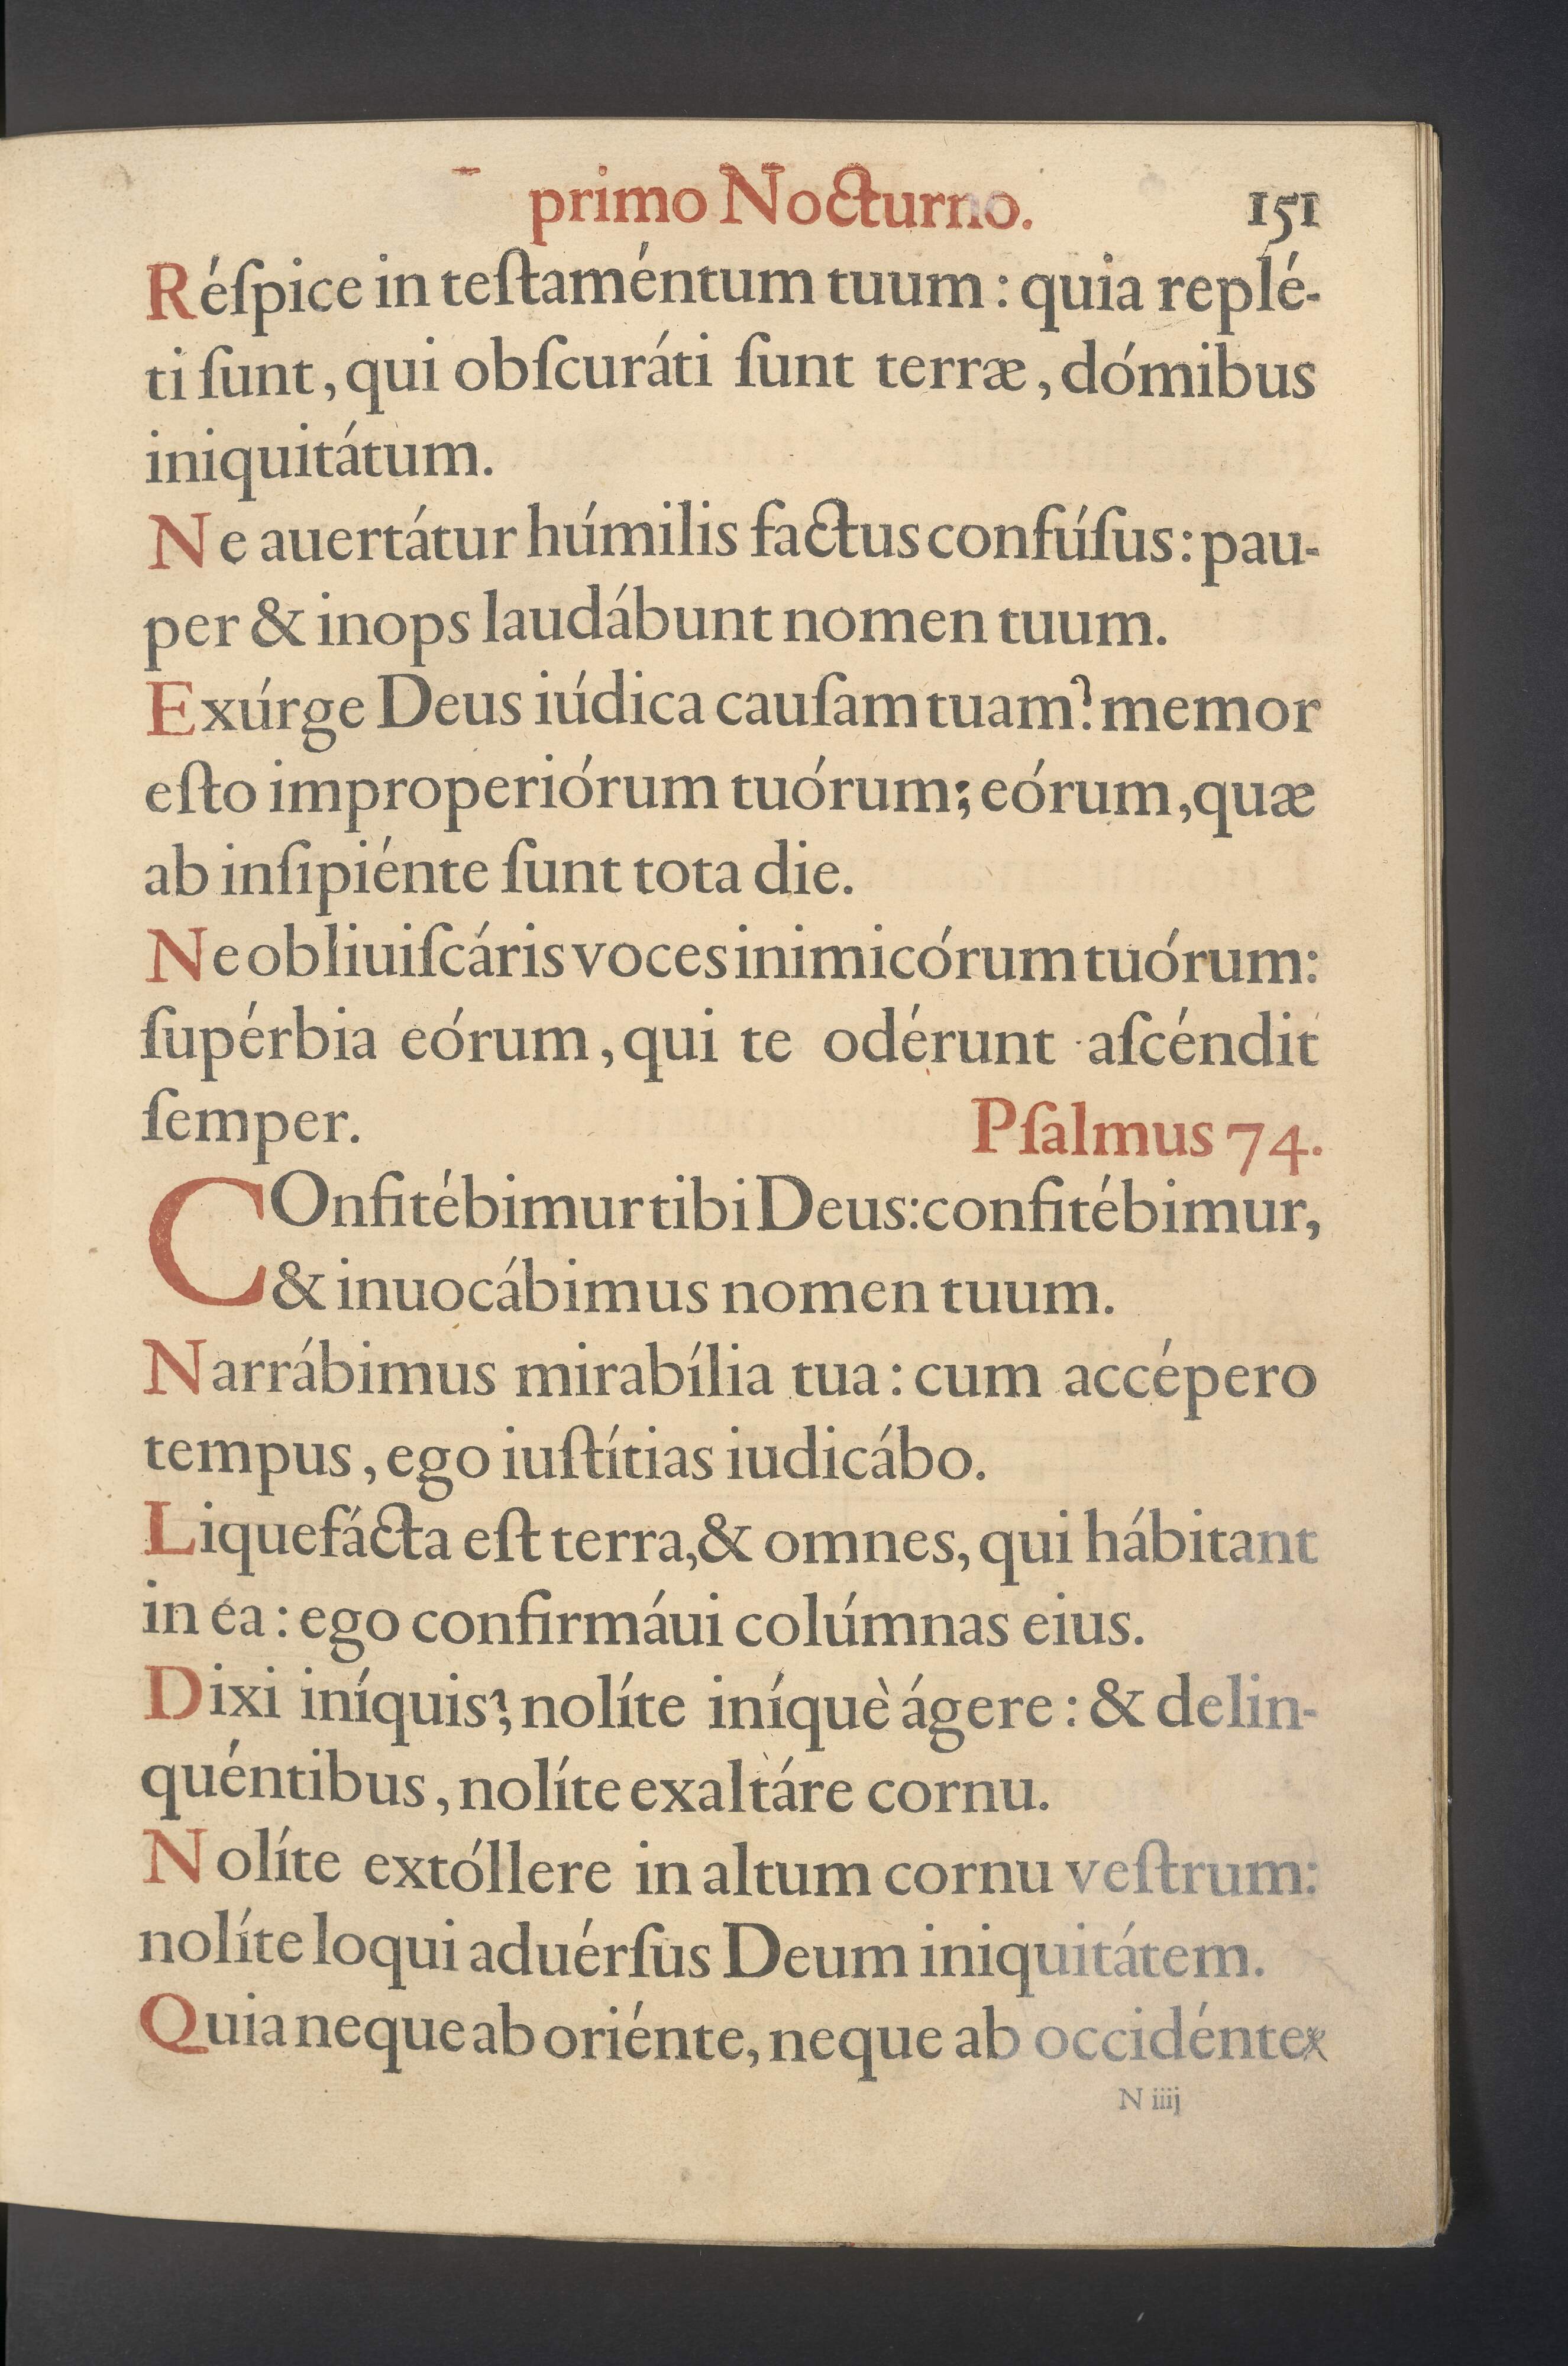 primo Nocturno. 151
Réſpice in teſtaméntum tuum : quia replé-
ti ſunt, qui obſcuráti ſunt terræ, dómibus
iniquitátum.
Ne auertátur húmilis factus confúſus: pau-
per & inops laudábunt nomen tuum.
Exúrge Deus iúdica cauſam tuam? memor
eſto improperiórum tuórum; eórum, quæ
ab inſipiénte ſunt tota die.
Ne obliuiſcáris voces inimicórum tuórum:
ſupérbia eórum, qui te odérunt aſcéndit
ſemper. Pſalmus 74.
COnfitébimur tibi Deus: confitébimur,
& inuocábimus nomen tuum.
Narrábimus mirabília tua : cum accépero
tempus, ego iuſtítias iudicábo.
Liquefácta eſt terra, & omnes, qui hábitant
in ea : ego confirmáui colúmnas eius.
Dixi iníquis; nolíte iníquè ágere : & delin-
quéntibus, nolíte exaltáre cornu.
Nolíte extóllere in altum cornu veſtrum:
nolíte loqui aduérſus Deum iniquitátem.
Quia neque ab oriénte, neque ab occidénte
N iiij